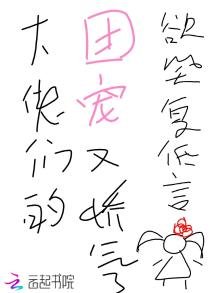 大佬们的
团宠又娇气
欲复低言
云起书院